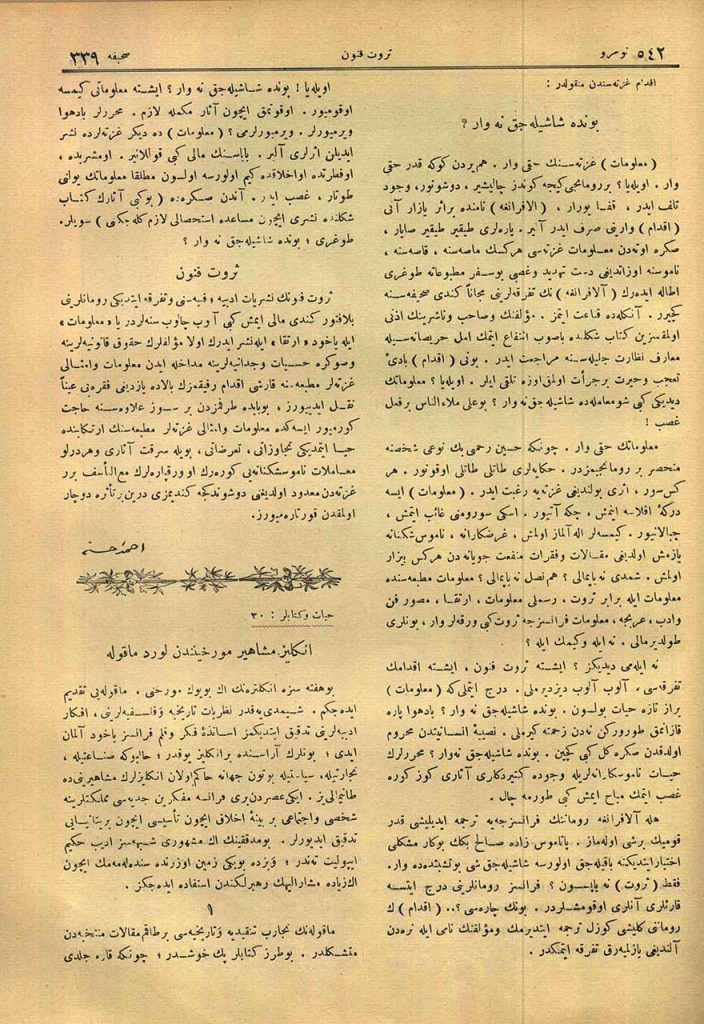 ٥٤٢ نومرو
ثروت فنون
صحیفه ٣٣٩
اقدام غزته‌سندن منقولدر :
بونده شاشیله‌جق نه وار ؟
( معلومات ) غزته‌سنك حقی وار . هم یردن كوكه قدر حقی
وار . اویله‌یا ؟ بررومانجی كیجه كوندز چالیشیر ، دوشونور ، وجود
تلف ایدر ، قفا یورار ، ( آلافرانغه ) نامنده براثر یازار آنی
( اقدام ) وارینی صرف ایدر آلیر . پاره‌لری طیقیر طیقیر صایار ،
صكره اوته‌دن معلومات غزته‌سی هركسك ماصه‌سنه ، قاصه‌سنه ،
ناموسنه اوزاتدیغی دست تهدید وغصبی بوسفر مطبوعاته طوغری
اطاله ایده‌رك ( آلافرانغه ) نك تفرقه‌لرینی مجاناً كندی صحیفه‌سنه
كچیرر . آنكله‌ده قناعت ایتمز . مؤلفنك وصاحب وناشرینك اذنی
اولمقسزین كتاب شكلنده باصوب انتفاع ایتمك امل حریصانه‌سیله
معارف نظارت جلیله‌سنه مراجعت ایدر . بونی ( اقدام ) بادئ
تعجب وحیرت برجرأت اولمق اوزه تلقی ایلر . اویله‌یا ؟ معلوماتك
دیدیكی كبی شومعامله‌ده شاشیله‌جق نه وار ؟ بوعلی ملاءالناس برفعل
غصب !
معلوماتك حقی وار . چونكه حسین رحمی بك نوعی شخصنه
منحصر بر رومانجیمزدر . حكایه‌لری طاتلی طاتلی اوقونور . هر
كس سور ، اثری بولندیغی غزته‌یه رغبت ایدر . ( معلومات ) ایسه
دركهٔ افلاسه ایتمش ، چكه آتیور . اسكی سورومنی غائب ایتمش ،
چبالانیور . كیمسه‌لر اله آلماز اولمش ، غرضكارانه ، ناموس شكنانه
یازمش اولدیغی مقالات وفقرات منفعت جویانه دن هركس بیزار
اولمش . شمدی نه یاپمالی ؟ هم نصل نه یاپمالی ؟ معلومات مطبعه‌سنده
معلومات ایله برابر ثروت ، رسملی معلومات ، ارتقا ، مصور فن
وادب ، عربجه ، معلومات فرانسزجه ثروت كبی ورقه‌لر وار ، بونلری
طولدیرمالی . نه ایله وكیمك ایله ؟
نه ایله‌می دیدیكز ؟ ایشته ثروت فنون ، ایشته اقدامك
تفرقه‌سی ، آلوب آلوب دیزدیرملی . درج ایتملی كه ( معلومات )
براز تازه حیات بولسون . بونده شاشیله‌جق نه وار ؟ بادهوا پاره
قازانمق طوروركن نه‌دن زحمته كیرملی . نصیبهٔ انسانیتدن محروم
اولدقدن صكره كل كبی كچین . بونده شاشیله‌جق نه‌وار ؟ محررلرك
حیات ناموسكارانه‌لریله وجوده كتیردكلری آثاری كوز كوره
غصب ایتمك مباح ایمش كبی طورمه چال .
هله آلافرانغه رومانك فرانسزجه‌یه ترجمه ایدیلیشی قدر
قومیك برشی اوله‌ماز . یاناموس زاده صالح بكك بوكار مشكلی
اختیار ایتدیكنه باقیله‌جق اولورسه شاشیله‌جق شی بوتشبثده‌ده وار .
فقط ( ثروت ) نه یاپسون ؟ فرانسز رومانلرینی درج ایتسه
قارئلری آنلری اوقومشلردر . بونك چاره‌سی ؟.. ( اقدام ) ك
رومانی كلیشی كوزل ترجمه ایتدیرمك ومؤلفنك نامی ایله نره‌دن
آلندیغی یازلمیه‌رق تفرقه ایتمكدر .
اویله‌یا ! بونده شاشیله‌جق نه وار ؟ ایشته معلوماتی كیمسه
اوقومیور . اوقوتمق ایچون آثار مكمله لازم . محررلر بادهوا
ویرمیورلر . ویرمیورلرمی ؟ ( معلومات ) ده دیكر غزته‌لرده نشر
ایدیلن اثرلری آلیر . باباسنك مالی كبی قوللانیر . اومشربده ،
اوفطرتده اواخلاقده كیم اولورسه اولسون مطلقا معلوماتك یولنی
طوتار ، غصب ایدر . آندن صكره‌ده ( بوكبی آثارك كتاب
شكلنده نشری ایچون مساعده استحصالی لازم كله‌جكنی ) سویلر.
طوغری ؛ بونده شاشیله‌جق نه وار ؟
ثروت فنون
ثروت فنونك نشریات ادبیه ؛ فنیه‌سنی وتفرقه ایتدیكی رومانلرینی
بلافتور كندی مالی ایمش كبی آلوب چالوب سنه‌لردر یا « معلومات »
ایله یاخود « ارتقا » ایله‌نشر ایدرك اولا مؤلفلرك حقوق قانونیه‌لرینه
وصوكره حسیات وجدانیه‌لرینه مداخله ایدن معلومات وامثالی
غزته‌لر مطبعه‌سنه قارشی اقدام رفیقمزك بالاده یازدیغی فقره‌یی عیناً
نقل ایدییورز ، بوبابده طرفمزدن بر سوز علاوه‌سنه حاجت
كورمیور ایسه‌كده معلومات وامثالی غزته‌لر مطبعه‌سنك ارتكابندن
حیا ایتمدیكی تجاوزاتی ، تعرضاتی ، بویله سرقت آثاری وهردرلو
معاملات ناموسشكنانه‌یی كوره‌رك اوورقپاره‌لرك مع‌التأسف برر
غزته‌دن معدود اولدیغنی دوشوندكجه كندیمزی درین برتأثره دوچار
اولمقدن قورتاره‌میورز.
احمد احسان
حیات وكتابلر : ٣٠
انكلیز مشاهیر مورخیندن لورد ماقوله
بوهفته سزه انكلتره‌نك اك بویوك مورخی ، ماقوله‌یی تقدیم
ایده‌جكم . شیمدی‌یه‌قدر نظریات تاریخیه وفلسفیه‌لرینی ، افكار
ادبیه‌لرینی تدقیق ایتدیكمز اساتذهٔ فكر وقلم فرانسز یاخود آلمان
ایدی ؛ بونلرك آراسنده برانكلیز یوقدر ؛ حالبوكه صناعتیله ،
تجارتیله ، سیاستیله بوتون جهانه حاكم اولان انكلیزلرك مشاهیرینی ده
طانیمالی‌یز . ایكی عصردن‌بری فرانسه مفكرین جدیه‌سی مملكتلرینه
شخصی واجتماعی بر بنیهٔ اخلاق ایچون تأسیسی ایچون بریتانیایی
تدقیق ایدیورلر . بومدققینك اك مشهوری شبهه‌سز ادیب حكیم
ایپولیت ته‌ندر ؛ وبزده بویكی زمین اوزرنده سنده‌له‌مه‌مك ایچون
اك‌زیاده مشارالیهك رهبرلكندن استفاده ایده‌جكز .
١
ماقوله‌نك تجارب تنقیدیه وتاریخیه‌سی برطاقم مقالات منتخبه‌دن
متشكلدر . بوطرز كتابلر پك خوشدر ؛ چونكه قاره جلدی